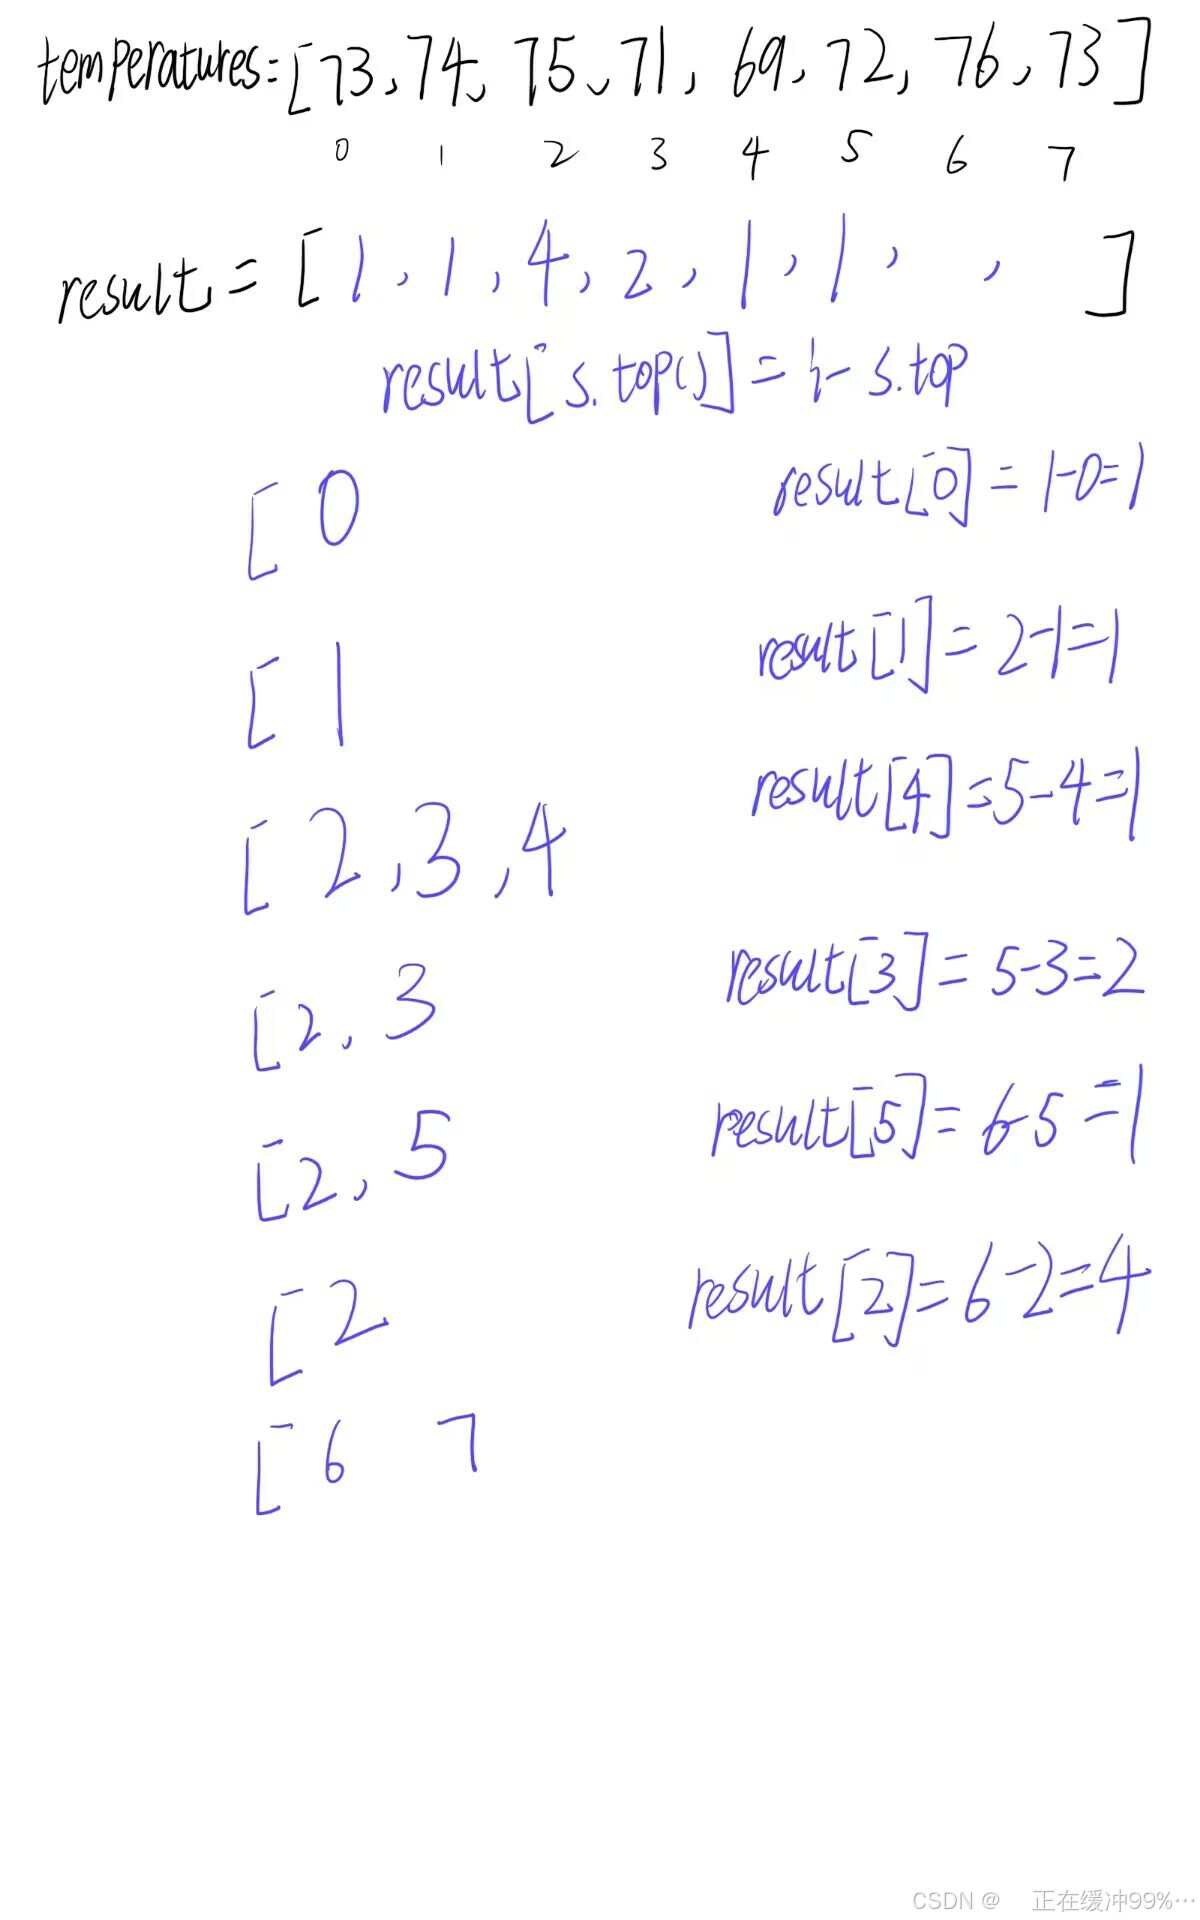 temperatures=[73,74,75,71,69,72,76,73]
0 1 2 3 4 5 6 7
result=[1,1,4,2,1,1, , ]
result[s.top()]=i-s.top
[0 result[0]=1-0=1
[1 result[1]=2-1=1
[2,3,4 result[4]=5-4=1
[2,3 result[3]=5-3=2
[2,5 result[5]=6-5=1
[2 result[2]=6-2=4
[6 7
CSDN @ 正在缓冲99%···